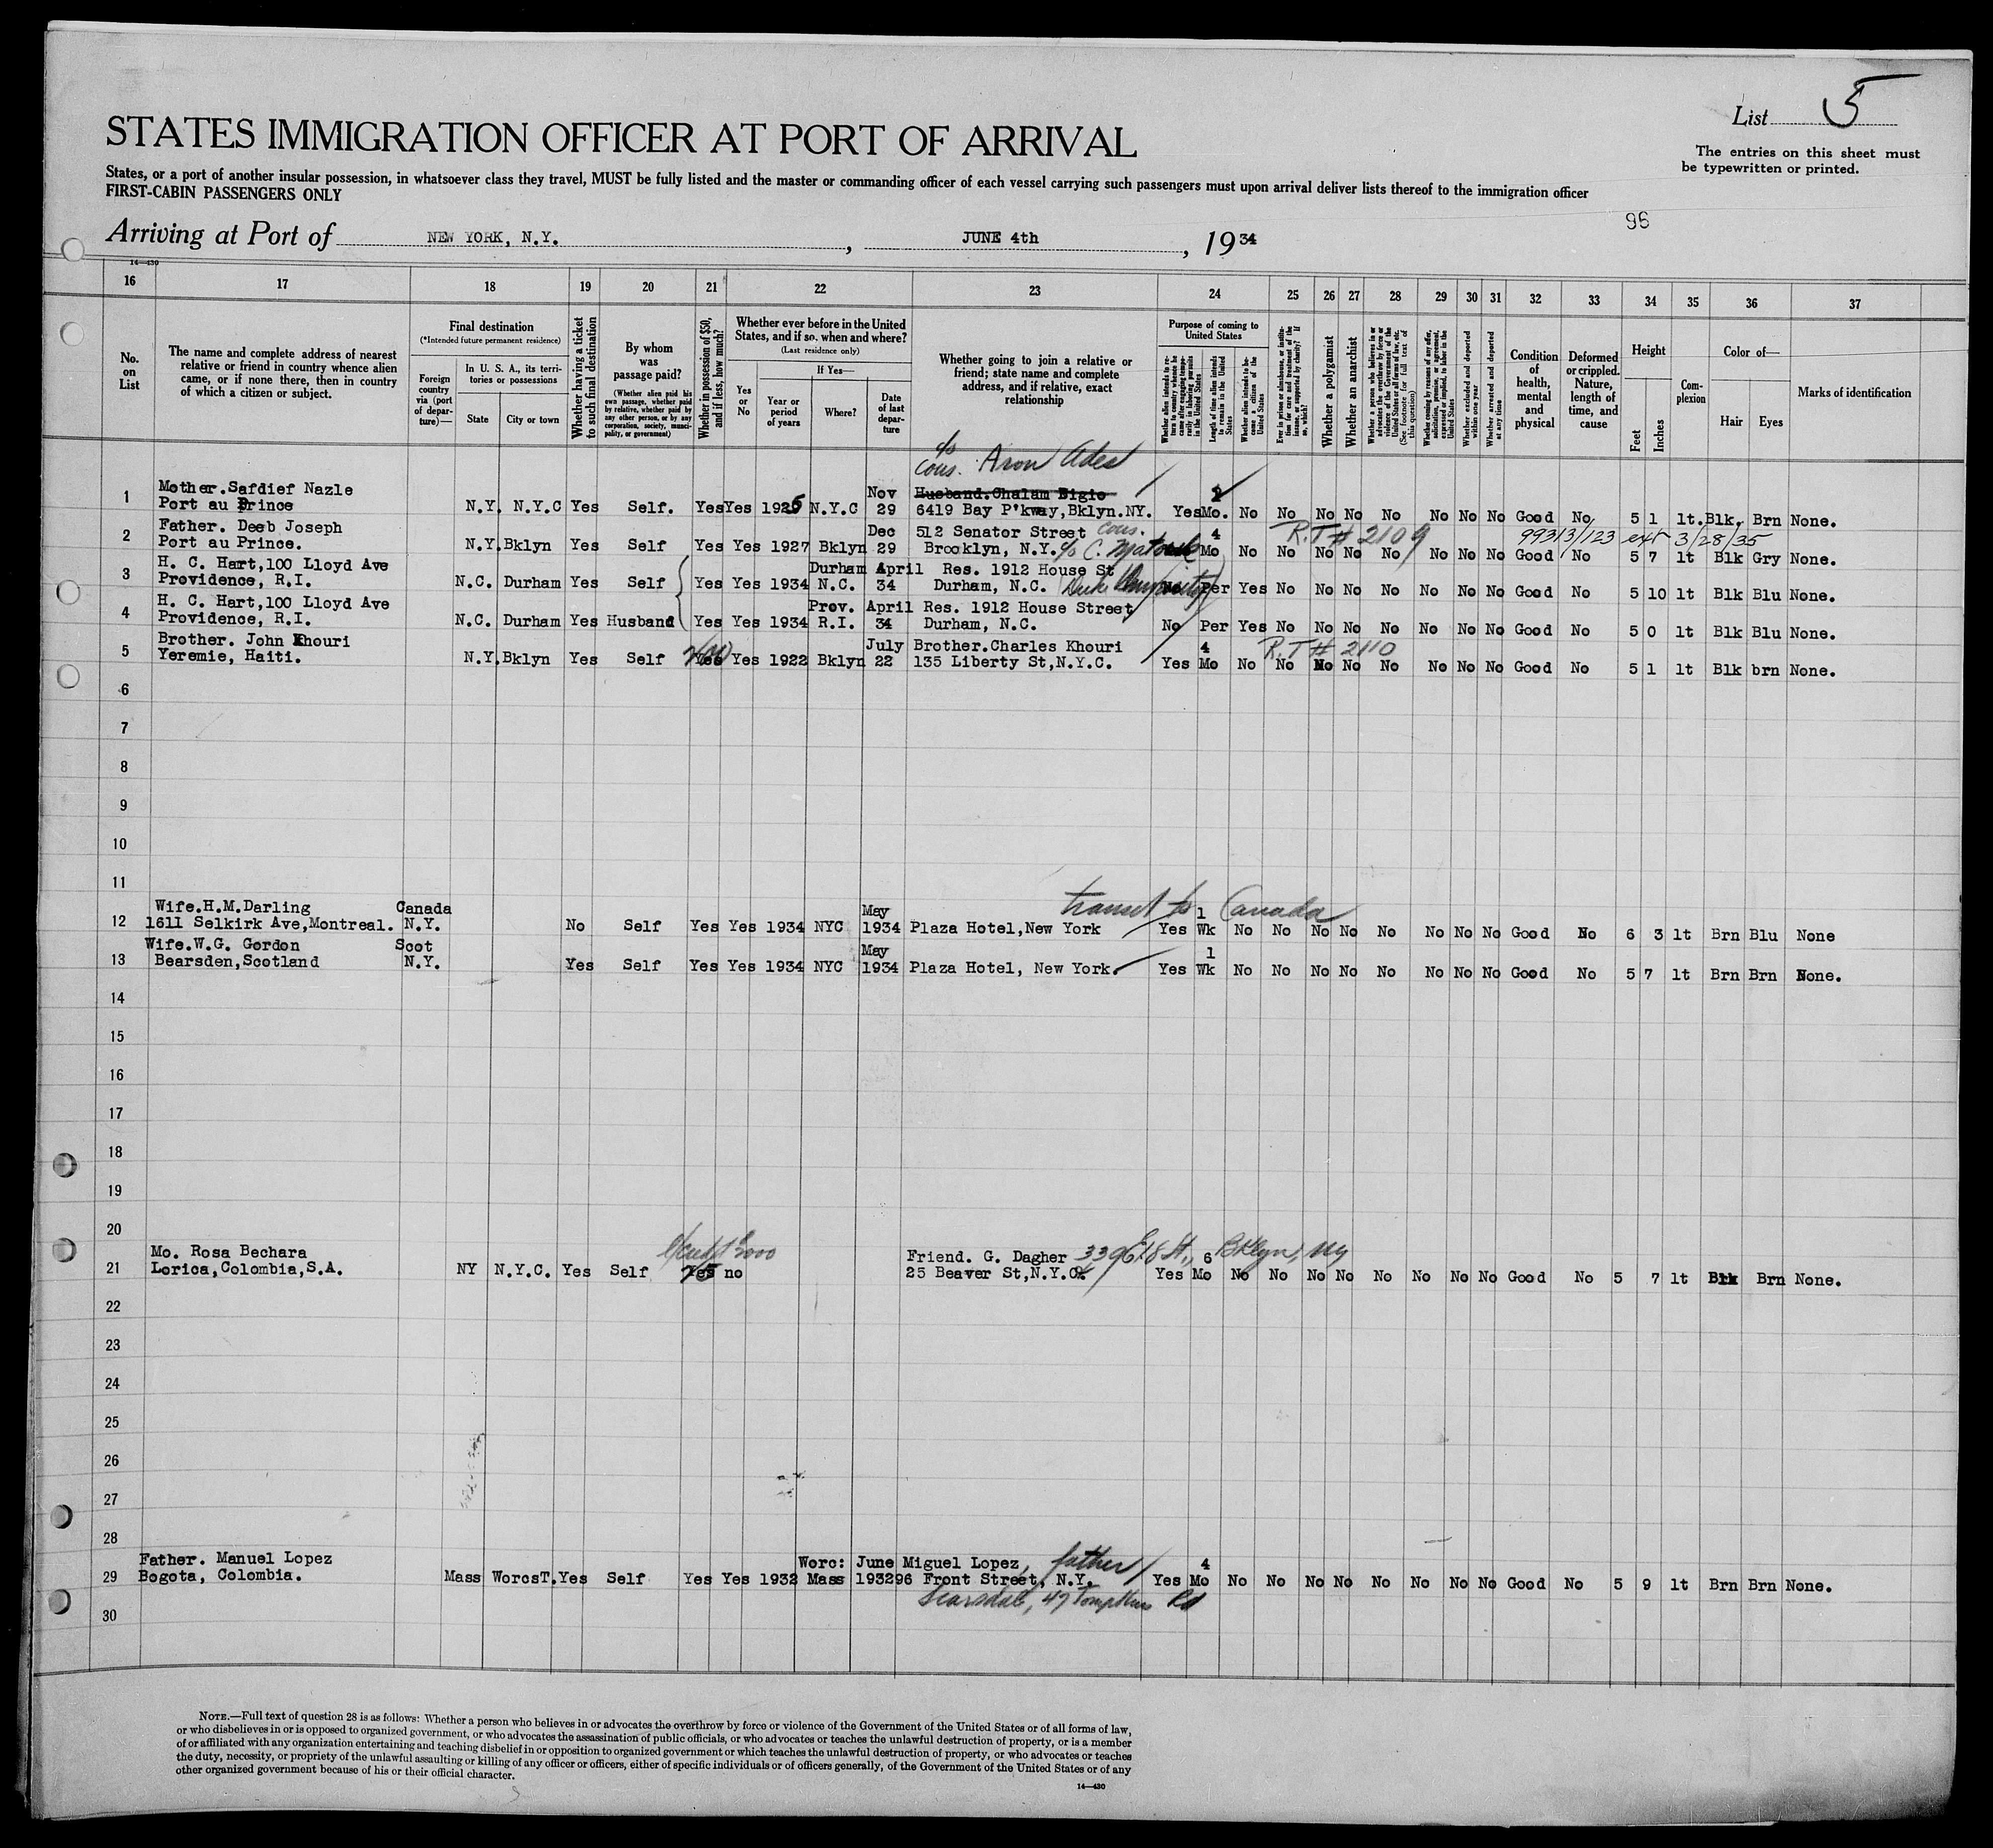 List 5
STATES IMMIGRATION OFFICER AT PORT OF ARRIVAL
The entries on this sheet must
be typewritten or printed.
States, or a port of another insular possession, in whatsoever class they travel, MUST be fully listed and the master or commanding officer of each vessel carrying such passengers must upon arrival deliver lists thereof to the immigration officer
FIRST-CABIN PASSENGERS ONLY
96
Arriving at Port of NEW YORK, N.Y. , JUNE 4th , 1934
14—430
16 17 18 19 20 21 22 23 24 25 26 27 28 29 30 31 32 33 34 35 36 37
No. on List
The name and complete address of nearest relative or friend in country whence alien came, or if none there, then in country of which a citizen or subject.
Final destination
(*Intended future permanent residence)
Foreign country via (port of departure)—
In U. S. A., its territories or possessions
State
City or town
Whether having a ticket to such final destination
By whom was passage paid?
(Whether alien paid his own passage, whether paid by relative, whether paid by any other person, or by any corporation, society, municipality, or government)
Whether in possession of $50, and if less, how much?
Whether ever before in the United States, and if so, when and where?
(Last residence only)
Yes or No
If Yes—
Year or period of years
Where?
Date of last departure
Whether going to join a relative or friend; state name and complete address, and if relative, exact relationship
Purpose of coming to United States
Whether alien intends to return to country whence he came after engaging temporarily in laboring pursuits in the United States
Length of time alien intends to remain in the United States
Whether alien intends to become a citizen of the United States
Ever in prison or almshouse, or institution for care and treatment of the insane, or supported by charity? If so, which?
Whether a polygamist
Whether an anarchist
Whether a person who believes in or advocates the overthrow by force or violence of the Government of the United States or all forms of law, etc. (See footnote for full text of this question)
Whether coming by reasons of any offer, solicitation, promise, or agreement, expressed or implied, to labor in the United States
Whether excluded and deported within one year
Whether arrested and deported at any time
Condition of health, mental and physical
Deformed or crippled. Nature, length of time, and cause
Height
Feet
Inches
Complexion
Color of—
Hair
Eyes
Marks of identification
c/o
cous. Aron Ades
Mother.Safdief Nazle Nov Husband.Chalam Bigio 2
1 Port au Prince N.Y. N.Y.C Yes Self. Yes Yes 1925 N.Y.C 29 6419 Bay P'kway,Bklyn.NY. Yes Mo. No No No No No No No No Good No 5 1 lt. Blk. Brn None.
Father. Deeb Joseph Dec 512 Senator Street cous. 4 R.T # 2109 99313/123 ext 3/28/35
2 Port au Prince. N.Y. Bklyn Yes Self Yes Yes 1927 Bklyn 29 Brooklyn, N.Y. c/o C. Mo No No No No No No No No Good No 5 7 lt Blk Gry None.
H. C. Hart,100 Lloyd Ave Durham April Res. 1912 House St
3 Providence, R.I. N.C. Durham Yes Self Yes Yes 1934 N.C. 34 Durham, N.C. Duke University No Per Yes No No No No No No No Good No 5 10 lt Blk Blu None.
H. C. Hart,100 Lloyd Ave Prov. April Res. 1912 House Street
4 Providence, R.I. N.C. Durham Yes Husband Yes Yes 1934 R.I. 34 Durham, N.C. No Per Yes No No No No No No No Good No 5 0 lt Blk Blu None.
Brother. John Khouri July Brother.Charles Khouri 4 R.T # 2110
5 Yeremie, Haiti. N.Y. Bklyn Yes Self Yes Yes 1922 Bklyn 22 135 Liberty St,N.Y.C. Yes Mo No No No No No No No No Good No 5 1 lt Blk brn None.
6
7
8
9
10
11
Wife.H.M.Darling Canada May transit to 1 Canada
12 1611 Selkirk Ave,Montreal. N.Y. No Self Yes Yes 1934 NYC 1934 Plaza Hotel,New York Yes Wk No No No No No No No No Good No 6 3 lt Brn Blu None
Wife.W.G. Gordon Scot May 1
13 Bearsden,Scotland N.Y. Yes Self Yes Yes 1934 NYC 1934 Plaza Hotel, New York. Yes Wk No No No No No No No No Good No 5 7 lt Brn Brn None.
14
15
16
17
18
19
20
Mo. Rosa Bechara Friend. G. Dagher 339 E18 St., 6 Bklyn, Ny
21 Lorica,Colombia,S.A. NY N.Y.C. Yes Self Yes no 25 Beaver St,N.Y.C. Yes Mo No No No No No No No No Good No 5 7 lt Blk Brn None.
22
23
24
25
26
27
28
Father. Manuel Lopez Worc: June Miguel Lopez, father 4
29 Bogota, Colombia. Mass WorcsT. Yes Self Yes Yes 1932 Mass 1932 96 Front Street, N.Y. Yes Mo No No No No No No No No Good No 5 9 lt Brn Brn None.
Scarsdale, 47 Tompkins Rd
30
NOTE.—Full text of question 28 is as follows: Whether a person who believes in or advocates the overthrow by force or violence of the Government of the United States or of all forms of law,
or who disbelieves in or is opposed to organized government, or who advocates the assassination of public officials, or who advocates or teaches the unlawful destruction of property, or is a member
of or affiliated with any organization entertaining and teaching disbelief in or opposition to organized government or which teaches the unlawful destruction of property, or who advocates or teaches
the duty, necessity, or propriety of the unlawful assaulting or killing of any officer or officers, either of specific individuals or of officers generally, of the Government of the United States or of any
other organized government because of his or their official character.
14—430